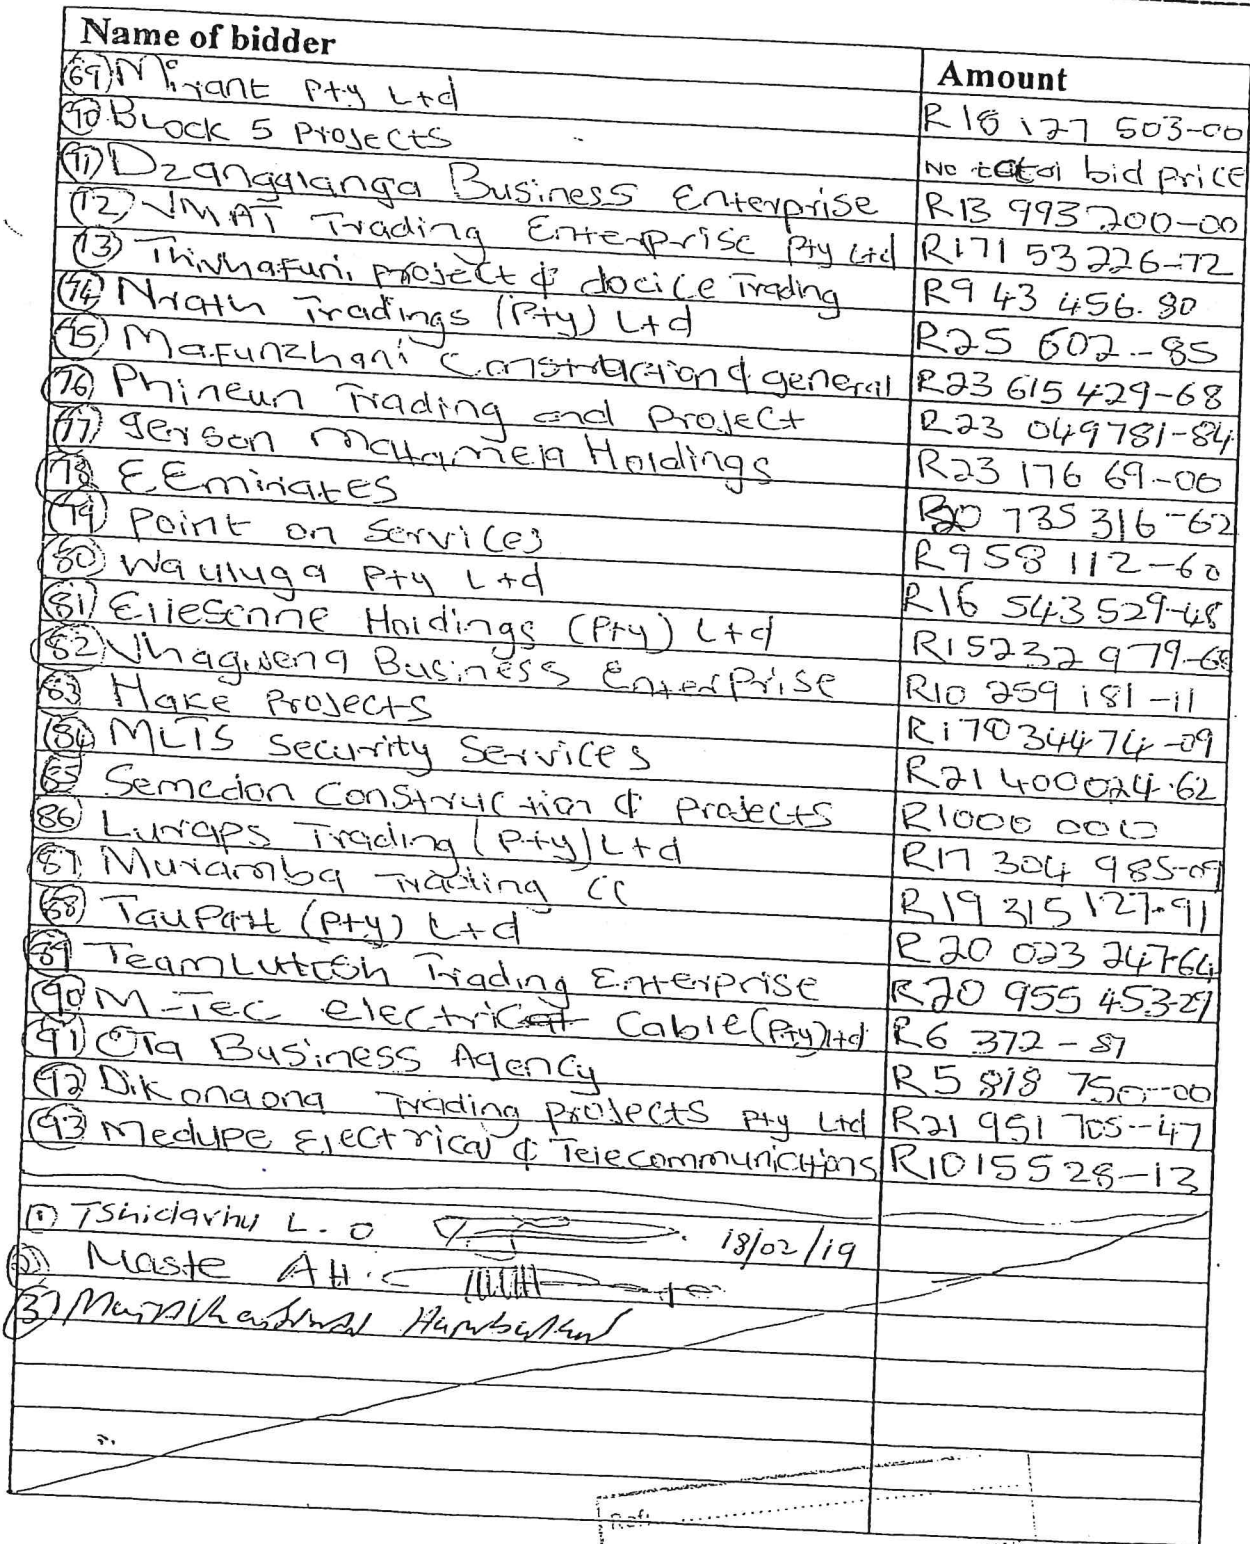 Name of bidder Amount
69) Mirant Pty Ltd R18 127 503-00
70 Block 5 Projects No total bid price
71) Dzangalanga Business Enterprise R13 993 200-00
72) VMAT Trading Enterprise Pty Ltd R171 53226-72
73) Thivhafuni project & docice Trading R9 43 456.80
74) Nrath Tradings (Pty) Ltd R25 602-85
75) Mafunzhani Construction & general R23 615 429-68
76) Phineun Trading and Project R23 049781-84
77) Gerson Matamela Holdings R23 176 69-00
78 EEmirates R20 735 316-62
79) Point on Services R958 112-60
80) Wauluga Pty Ltd R16 543 529-48
81) Eliesenne Holdings (Pty) Ltd R15232 979-68
82) Vhagwena Business Enterprise R10 259 181-11
83 Hake Projects R17034474-09
84) MLTS Security Services R21 400024.62
85 Semedon Construction & Projects R1000 000
86) Luraps Trading (Pty) Ltd R17 304 985-09
87) Muramba Trading CC R19 315 127-91
88) TauPatt (Pty) Ltd R20 023 247-64
89 Team Trading Enterprise R20 955 453-27
90 M-Tec electrical Cable (Pty) Ltd R6 372-87
91) Ota Business Agency R5 818 750-00
92) Dikonaona Trading Projects Pty Ltd R21 951 705-47
93) Medupe Electrical & Telecommunictions R1015528-13
1) Tshidavhu L.O 18/02/19
2) Maste AH.
3)
Ref: